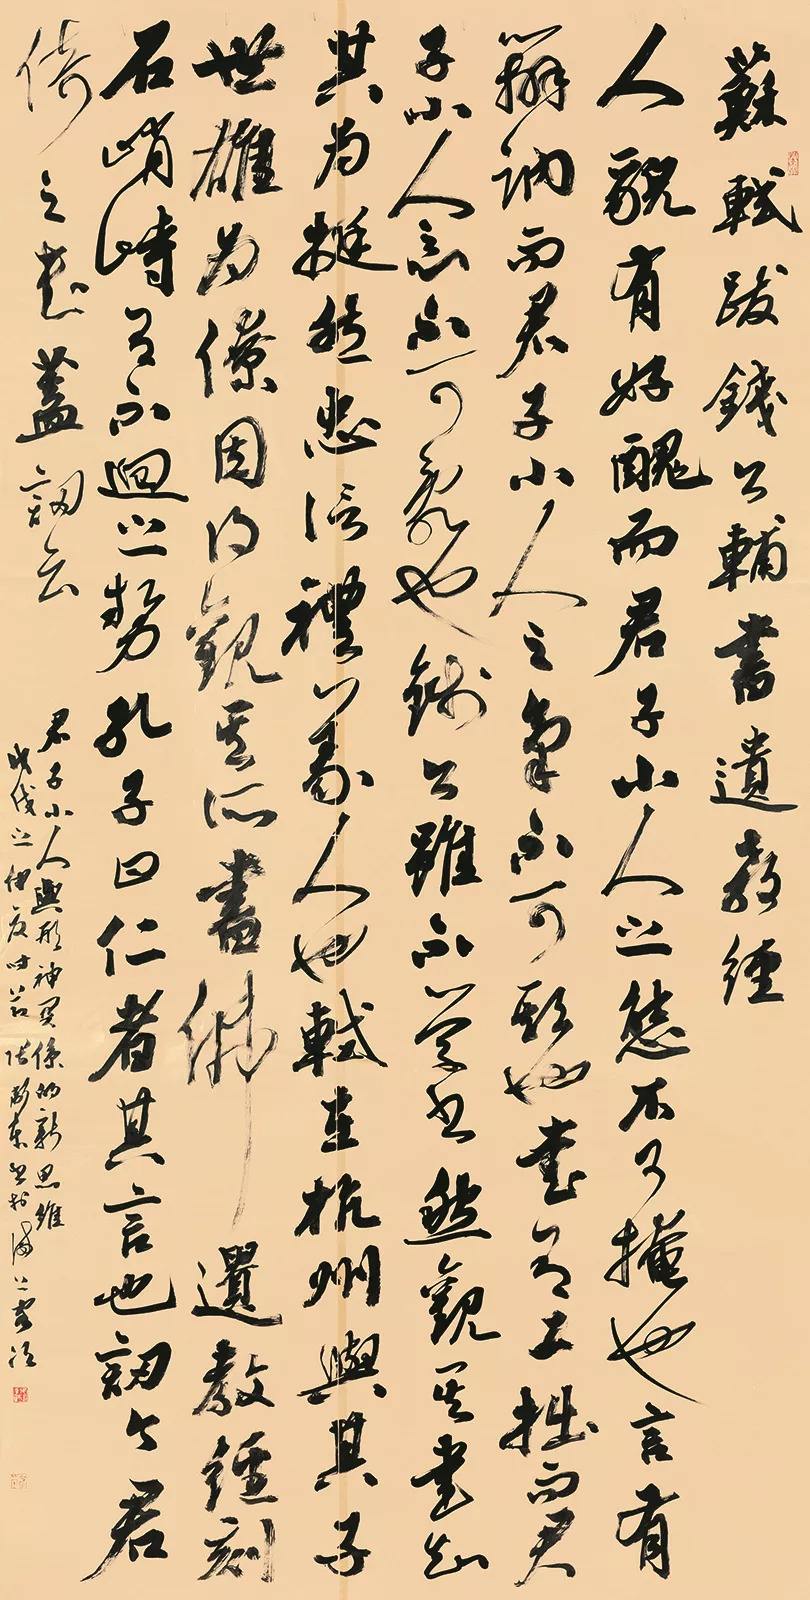 蘇軾跋錢公輔書遺教經
人貌有好醜而君子小人之態不可掩也言有
辯訥而君子小人之氣不可欺也書有工拙而君
子小人之心不可亂也錢公雖不學書然觀其書知
其為挺然忠信禮義人也軾在杭州與其子
世雄為僚因得觀其所書佛遺教經刻
石峭峙有不迴之勢孔子曰仁者其言也訒今君
倚之書蓋訒云
君子小人與形神關係的新思維
戊戌之仲夏